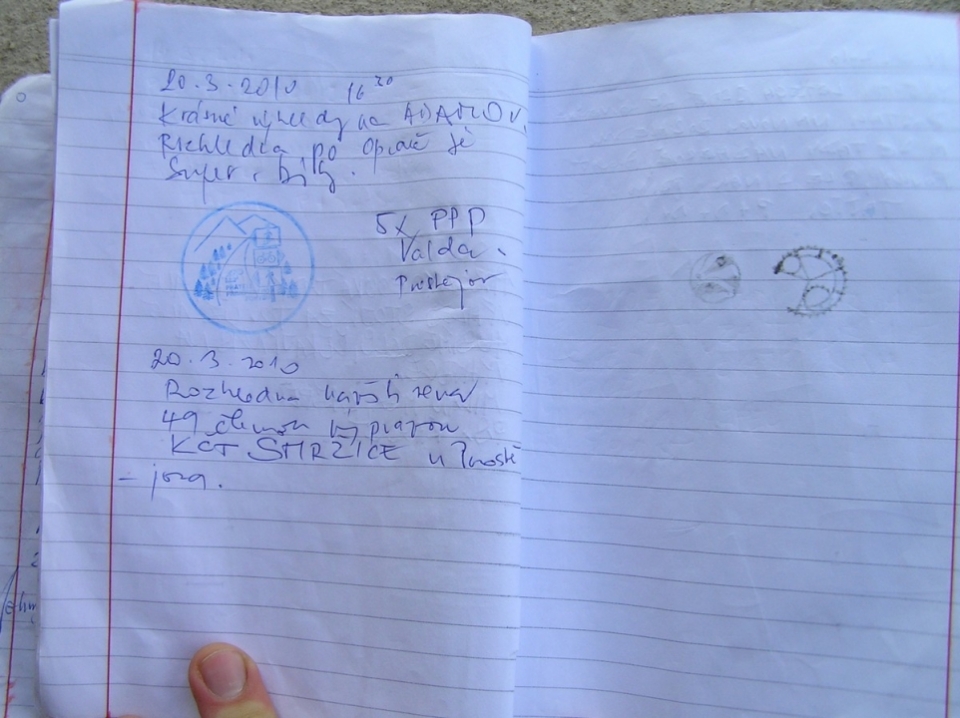 20.3.2010 16³⁰
Krásné výhledy na ADAMOV.
Rozhledna po opravě je
Super
5x PPP
Valda
Prostějov
20.3.2010
Rozhlednu navštívena
49 členou výpravou
KČT SMRŽICE u Prostě
- jova.